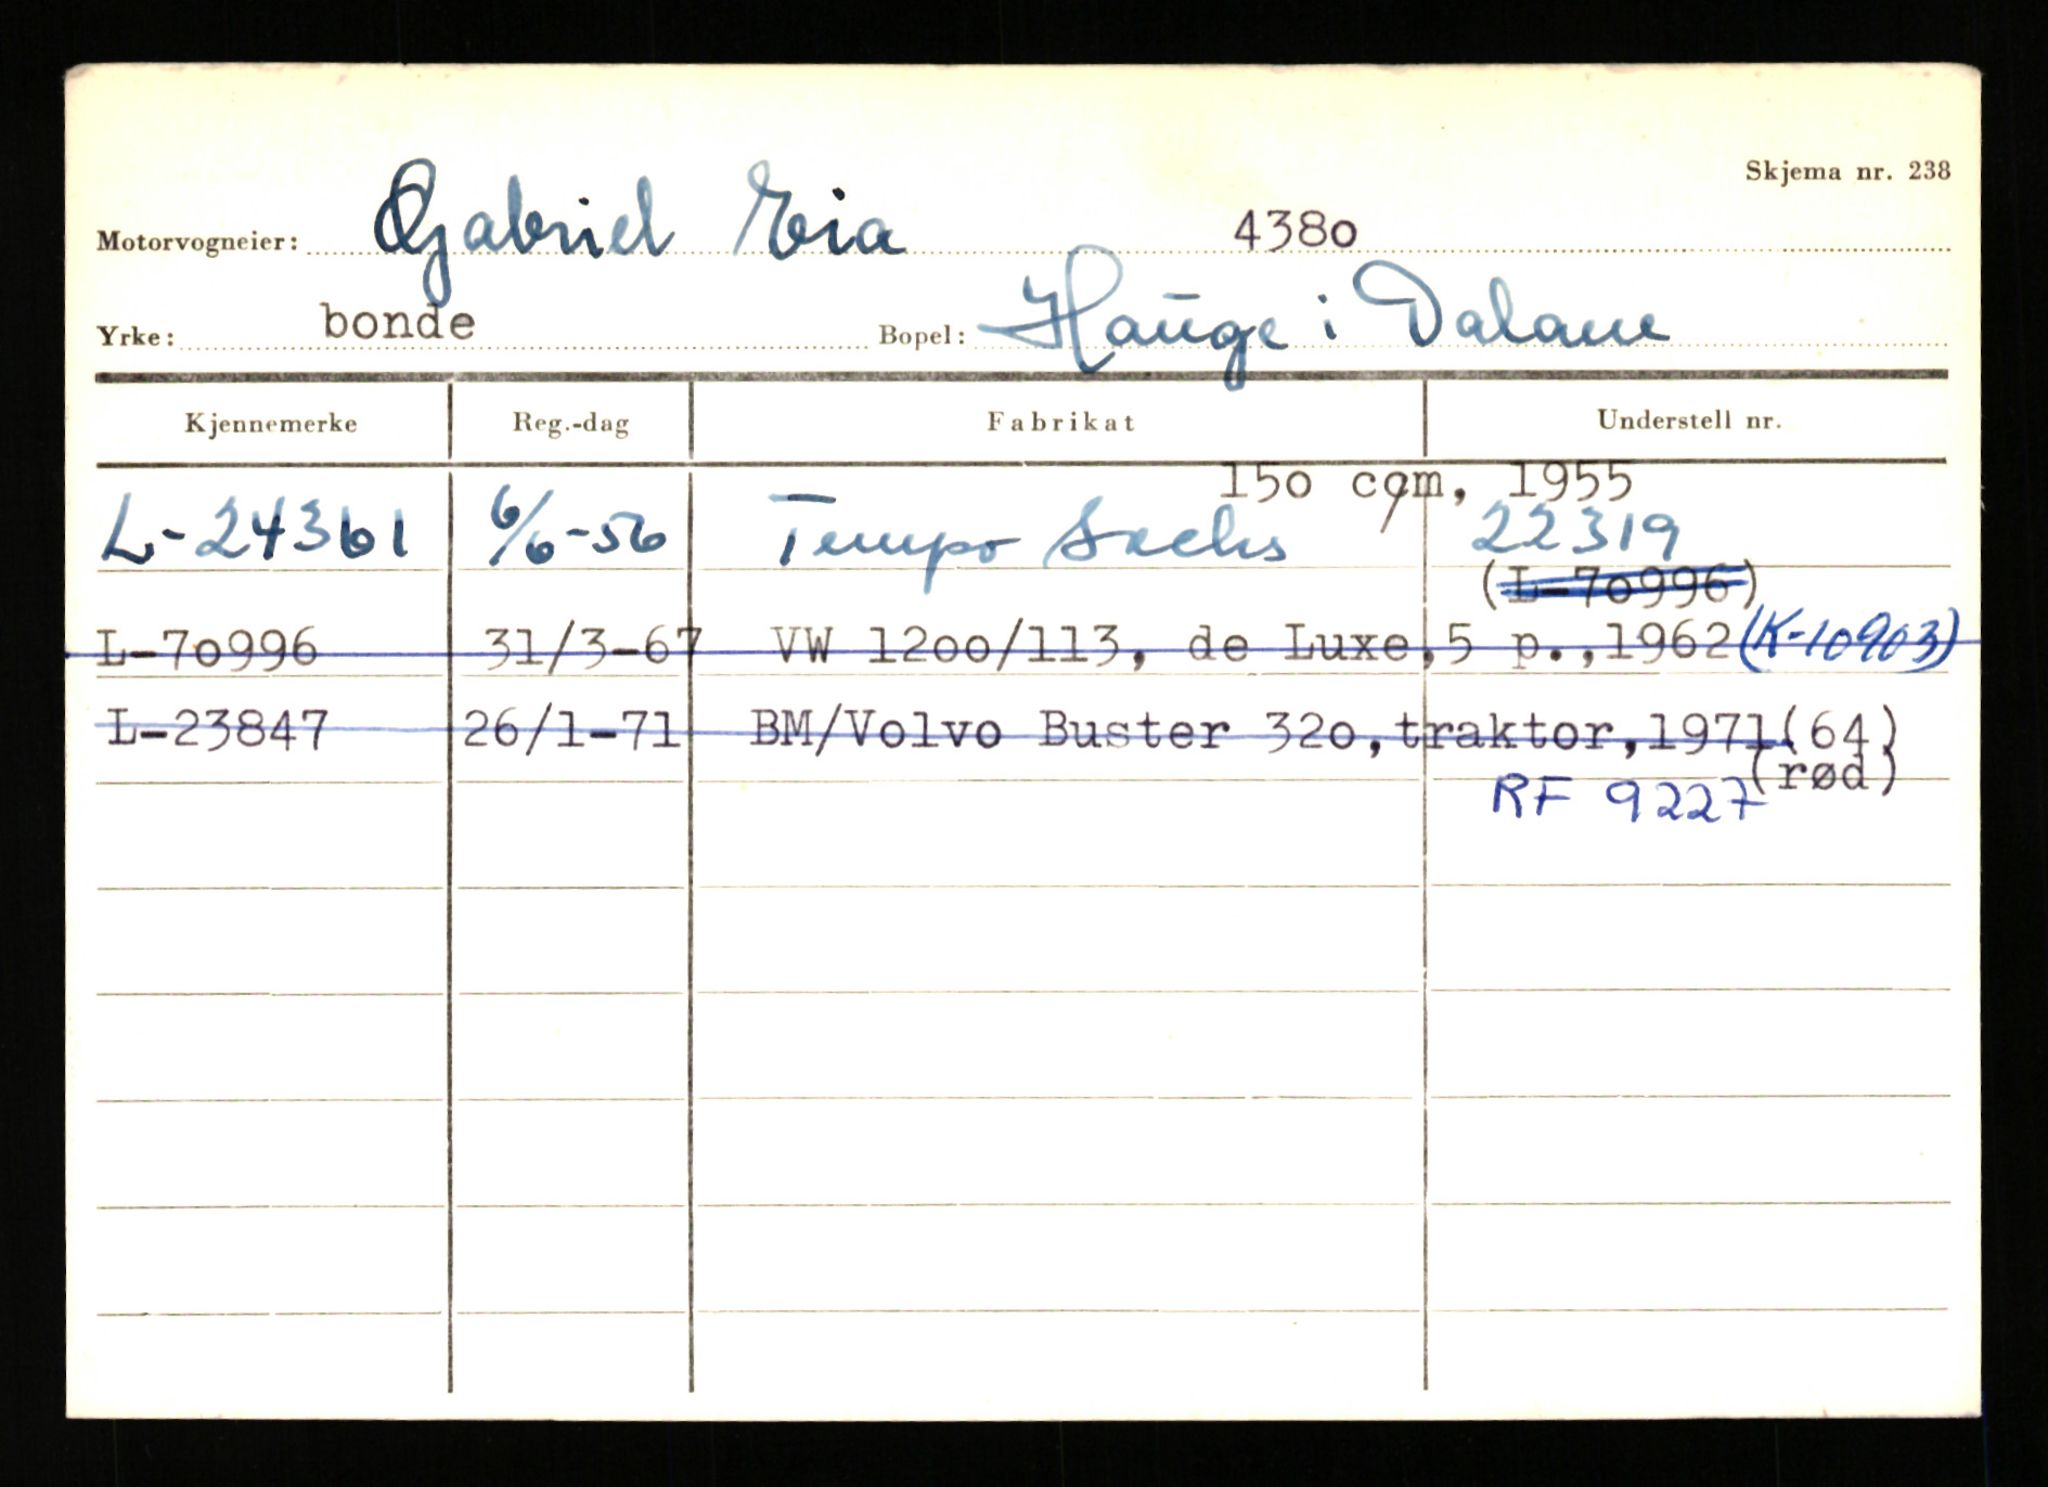 Skjema nr. 238
Motorvogneier: Gabriel Eia 4380
Yrke: bonde Bopel: Hauge i Dalane
Kjennemerke Reg.-dag Fabrikat Understell nr.
150 ccm, 1955
L-24361 6/6-56 Tempo Sachs 22319
(L-70996)
L-70996 31/3-67 VW 1200/113, de Luxe,5 p.,1962 (K-10903)
L-23847 26/1-71 BM/Volvo Buster 320,traktor,1971(64)
(rød)
RF 9227